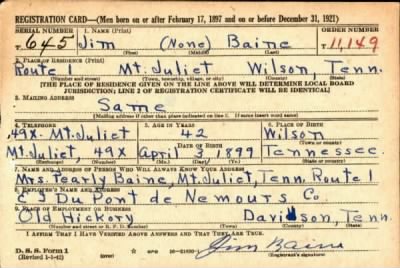 REGISTRATION CARD—(Men born on or after February 17, 1897 and on or before December 31, 1921)
SERIAL NUMBER 1. NAME (Print) ORDER NUMBER
T 645 Jim (None) Baine T 11,149
(First) (Middle) (Last)
2. PLACE OF RESIDENCE (Print)
Route 1 Mt. Juliet Wilson, Tenn.
(Number and street) (Town, township, village, or city) (County) (State)
[THE PLACE OF RESIDENCE GIVEN ON THE LINE ABOVE WILL DETERMINE LOCAL BOARD
JURISDICTION; LINE 2 OF REGISTRATION CERTIFICATE WILL BE IDENTICAL]
3. MAILING ADDRESS
Same
[Mailing address if other than place indicated on line 2. If same insert word same]
4. TELEPHONE 5. AGE IN YEARS 6. PLACE OF BIRTH
49X-Mt. Juliet 42 Wilson
DATE OF BIRTH (Town or county)
Mt. Juliet, 49X April 3 1899 Tennessee
(Exchange) (Number) (Mo.) (Day) (Yr.) (State or country)
7. NAME AND ADDRESS OF PERSON WHO WILL ALWAYS KNOW YOUR ADDRESS
Mrs. Pearly Baine, Mt. Juliet, Tenn. Route 1
8. EMPLOYER'S NAME AND ADDRESS
E I Du Pont de Nemours Co.
9. PLACE OF EMPLOYMENT OR BUSINESS
Old Hickory Davidson, Tenn.
(Number and street or R. F. D. number) (Town) (County) (State)
I AFFIRM THAT I HAVE VERIFIED ABOVE ANSWERS AND THAT THEY ARE TRUE.
D. S. S. Form 1
(Revised 1-1-42) (over) Jim Baine
(Registrant's signature)